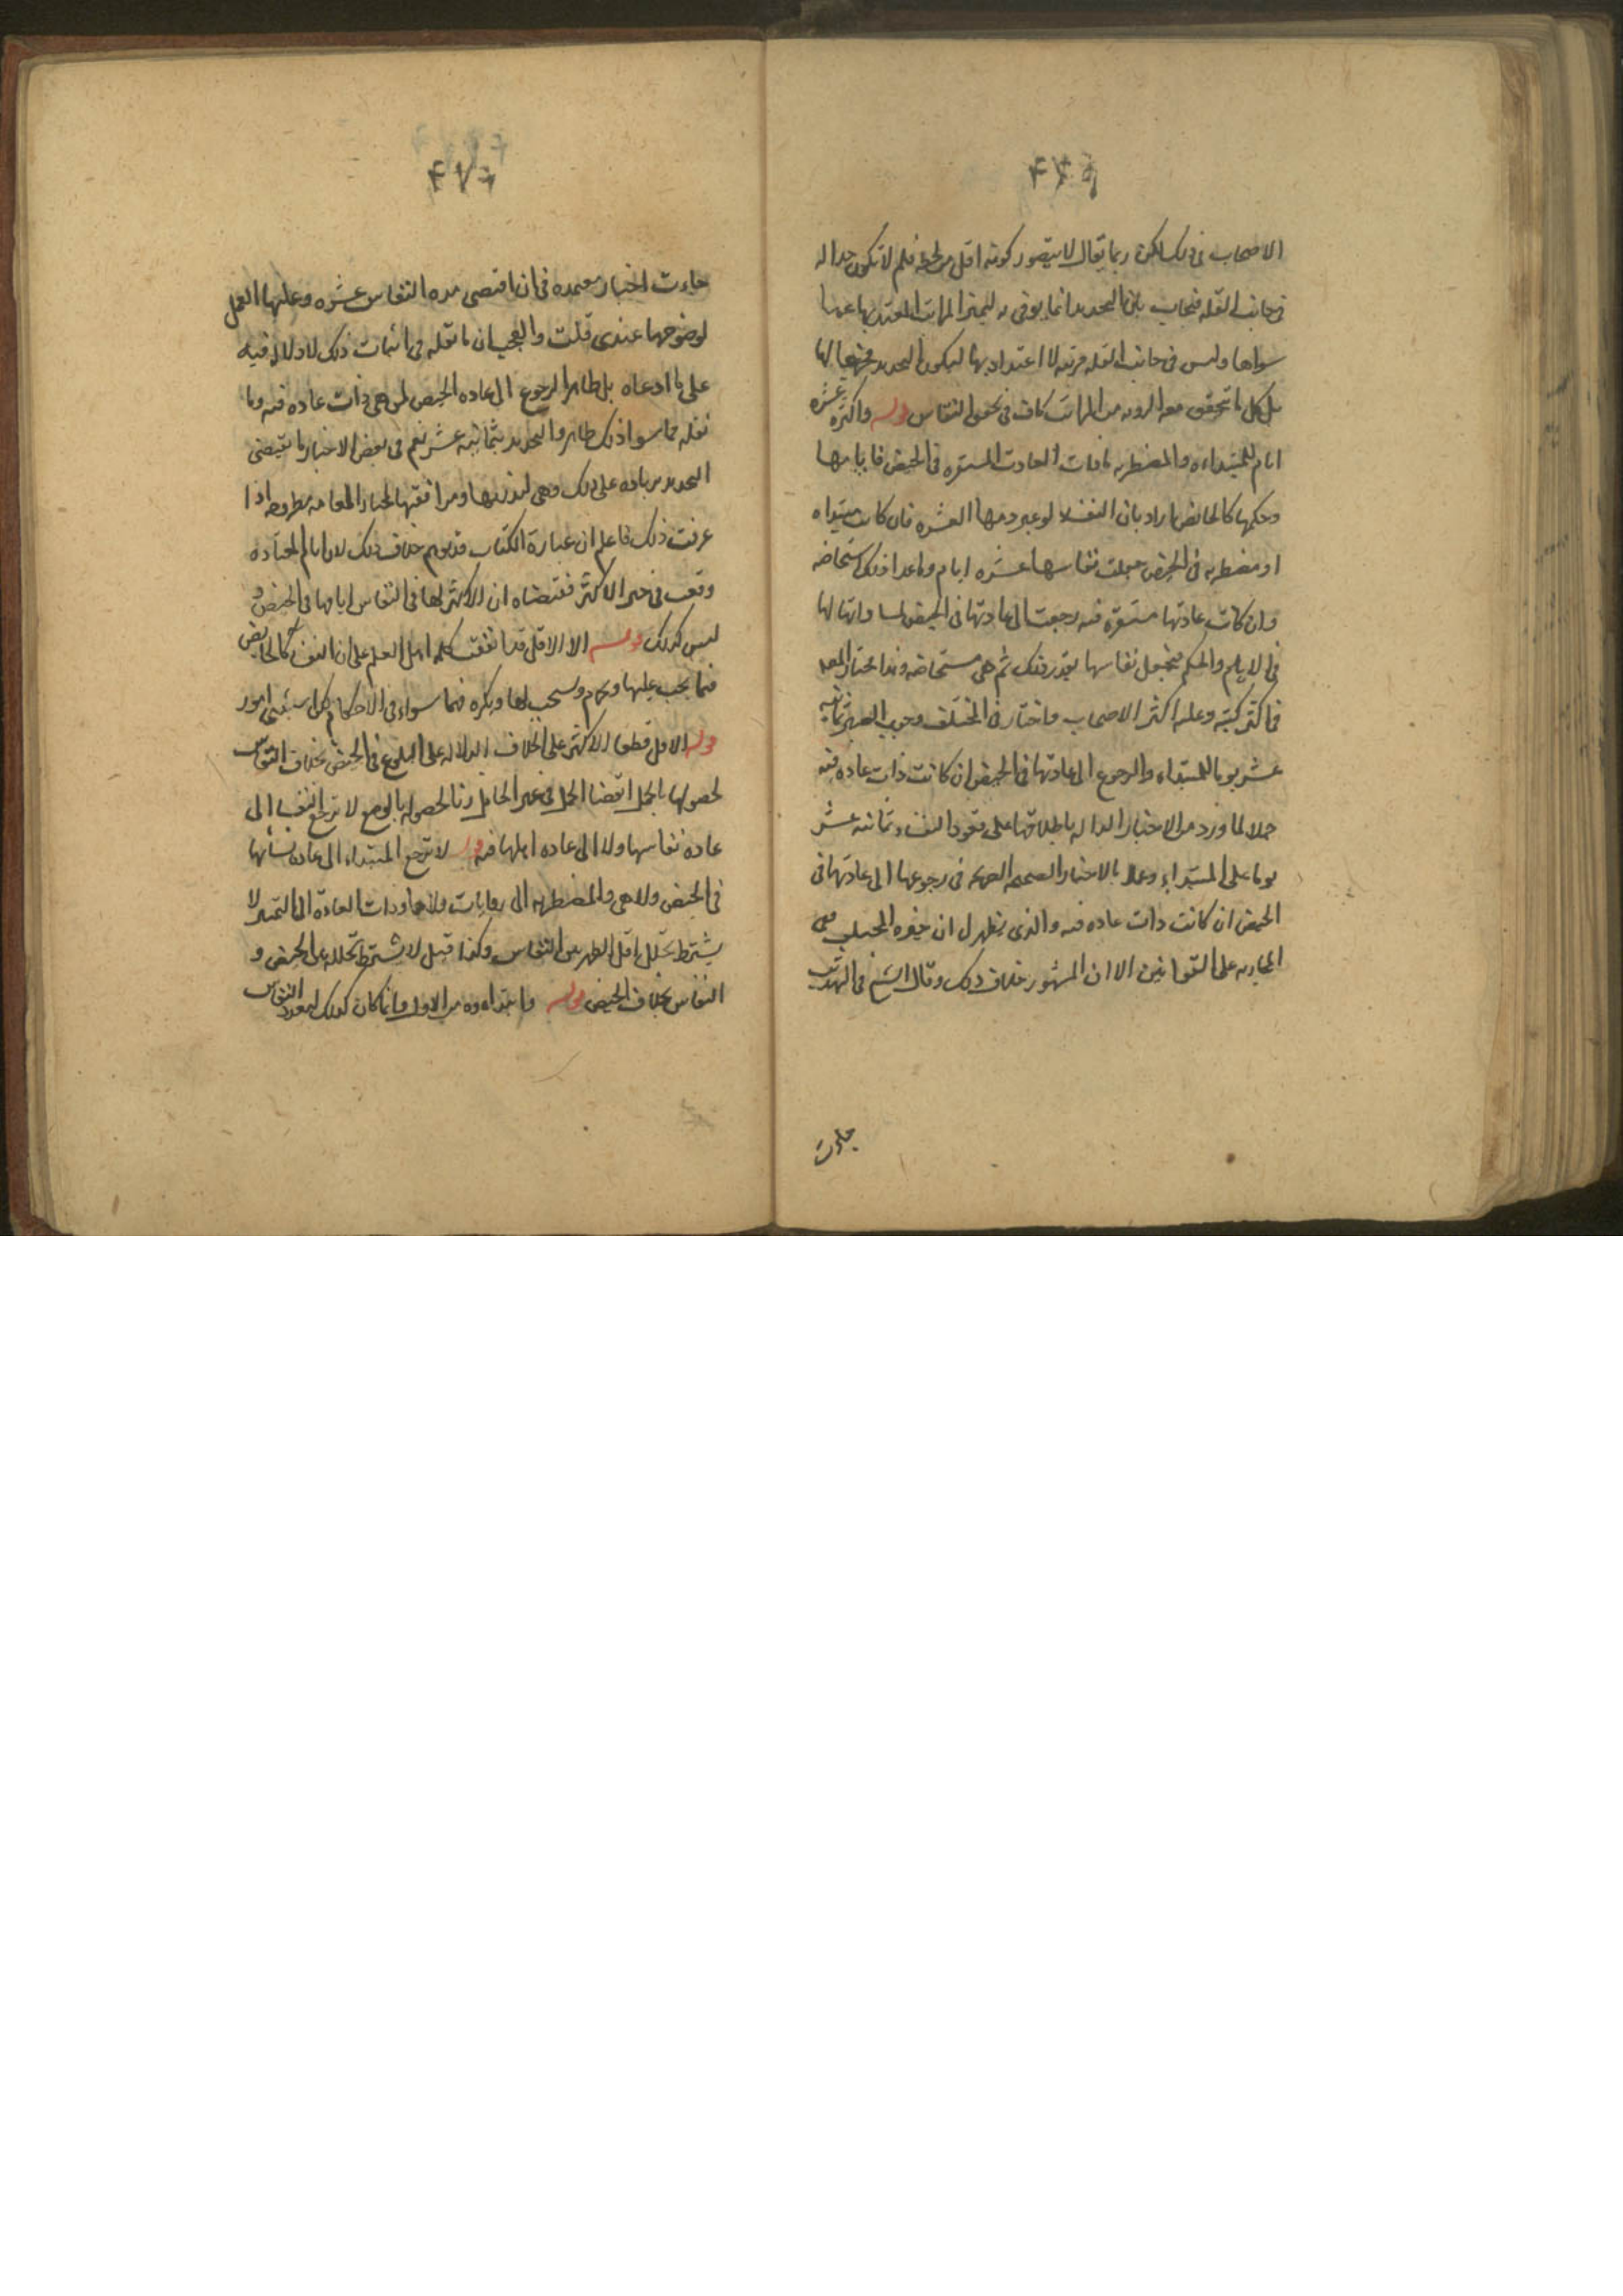 الاصحاب فى ذلك لكن ربما يقال لا يتصور كونه اقل من لحظه فلم لا تكون حدا له
فى جانب القله فيجاب بان التحديد انما يوتى به ليميز المراتب المعتد بها عما
سواها وليس فى جانب القله مرتبه لا اعتداد بها ليكون التحديد مخرجا لها
بل كل ما تحقق معه الرويه من المراتب كاف فى تحقق النفاس قوله واكثره عشره
ايام للمبتداءه والمضطربه اما ذات العادت المستقره فى الحيض فايامها
وحكمها كالحائض اراد بان النفسا لو عبر دمها العشره فان كانت مبتداه
او مضطربه فى الحيض جعلت نفاسها عشره ايام وما عدا ذلك استحاضه
وان كانت عادتها مستقره فيه رجعت الى عادتها فى الحيض
فى الايام والحكم فتجعل نفاسها بقدر ذلك ثم هى مستحاضه وهذا مختار المصـ
فى اكثر كتبه وعليه اكثر الاصحاب واختار فى المختلف وجوب الصبر ثمانيه
عشر يوما للمبتداه والرجوع الى عادتها فى الحيض ان كانت ذات عاده فيه
حملا لما ورد من الاخبار الداله باطلاقها على قعود النفساء ثمانيه عشر
يوما على المبتداء وعملا بالاخبار الصحيحه الصريحه فى رجوعها الى عادتها فى
الحيض ان كانت ذات عاده فيه والذى يظهر ل ان
الجاريه على القوانين الا ان المشهور خلاف ذلك وقال الشيخ فى التهذيب
جاءت
جاءت اخبار معتمده فى ان اقصى مده النفاس عشره وعليها العمل
لوضوحها عندى قلت والعجب ان ما نقله فى اثبات ذلك لا دلاله فيه
على ما ادعاه بل ظاهر الرجوع الى عاده الحيض لمن هى ذات عاده فيه وما
نقله مما سوا ذلك ظاهر والتحديد بثمانيه عشر نعم فى بعض الاخبار ما يقتضى
التحديد بزياده على ذلك وهى لندرتها وموافقتها لاخبار العامه مطروحه اذا
عرفت ذلك فاعلم ان عبارة الكتاب قد يوهم خلاف ذلك لان ايام المعتاده
وقعت فى حيز الاكثر فمقتضاه ان الاكثر لها فى النفاس ايامها فى الحيض و
ليس كذلك قوله الا الاقل قد اتفقت كلمه اهل العلم على ان النفسا كالحايض
فيما يجب عليها ويحرم ويستحب لها ويكره فهما سواء فى الاحكام كلها يستثنى امور
قوله الاقل قطعا الاكثر على الخلاف الدلاله على البلوغ فى الحيض بخلاف النفاس
لحصولها بالحمل انقضا الحمل فى غير الحامل زنا لحصوله بالوضع لا ترجع النفسا الى
عاده نفاسها ولا الى عاده امها فيه لا ترجع المبتداء الى عاده نسائها
فى الحيض ولا هى والمضطربه الى روايات ولا ها وذات العادة الى التميز لا
يشترط تخلل اقل الطهر بين النفاس وكذا قيل لا يشترط تخلله بين الحيض و
النفاس بخلاف الحيض قوله وابتداوه من الاول وانما كان كذلك لتعدد النفاس